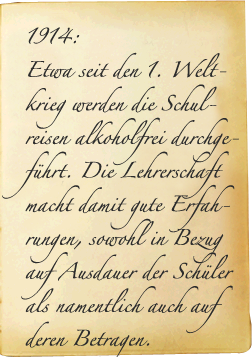 1914:
Etwa seit den 1. Welt-
krieg werden die Schul-
reisen alkoholfrei durchge-
führt. Die Lehrerschaft
macht damit gute Erfah-
rungen, sowohl in Bezug
auf Ausdauer der Schüler
als namentlich auch auf
deren Betragen.